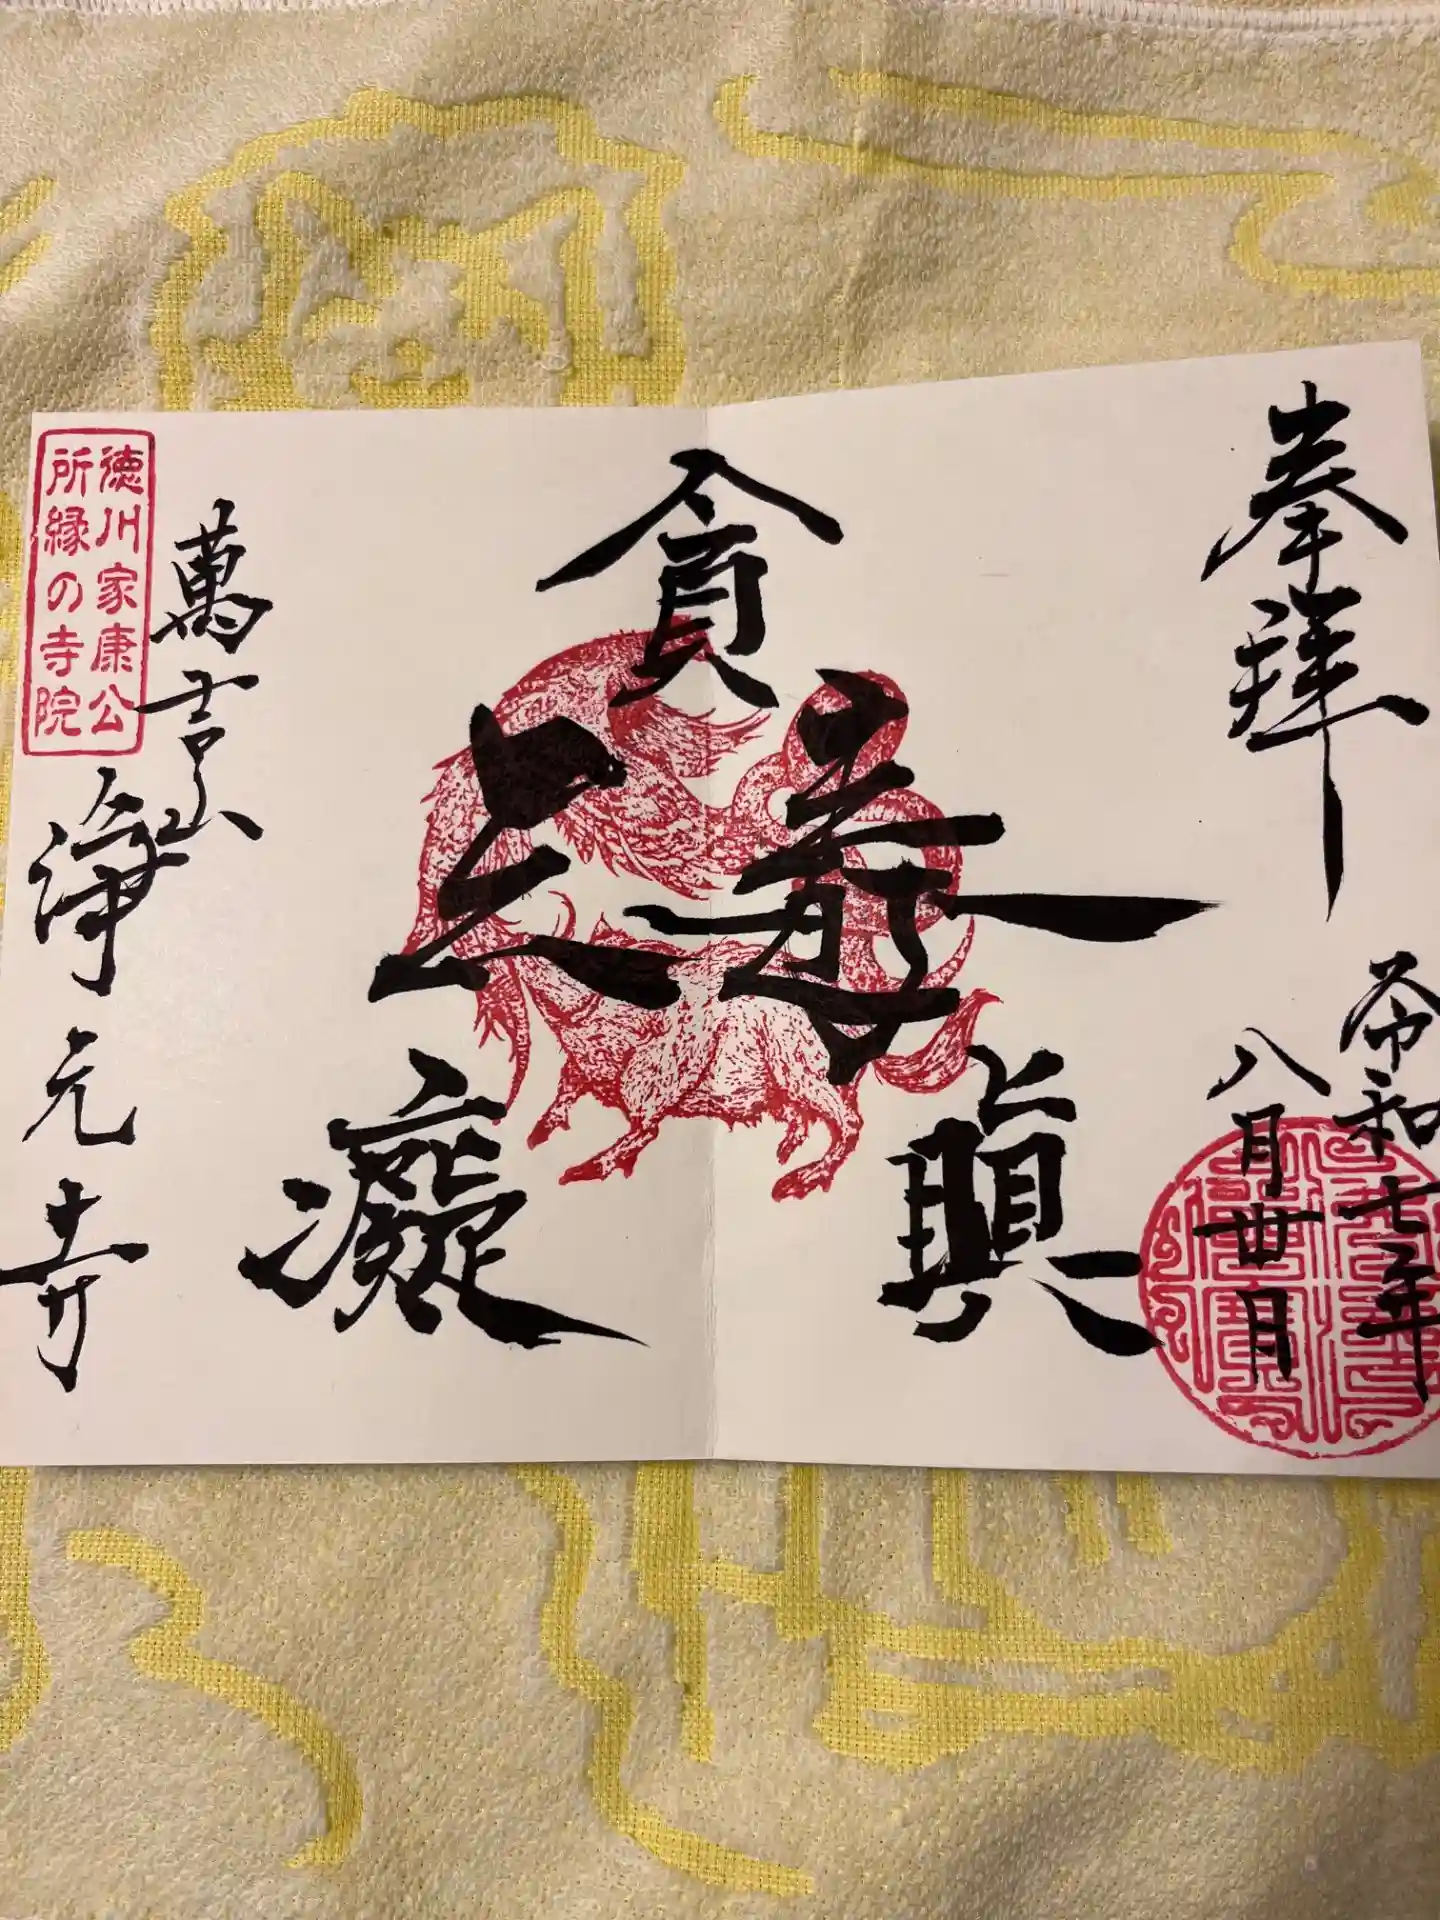 奉拝
令和七年
八月廿日
貪
三毒
瞋
癡
萬吉山
淨元寺
徳川家康公
所縁の寺院